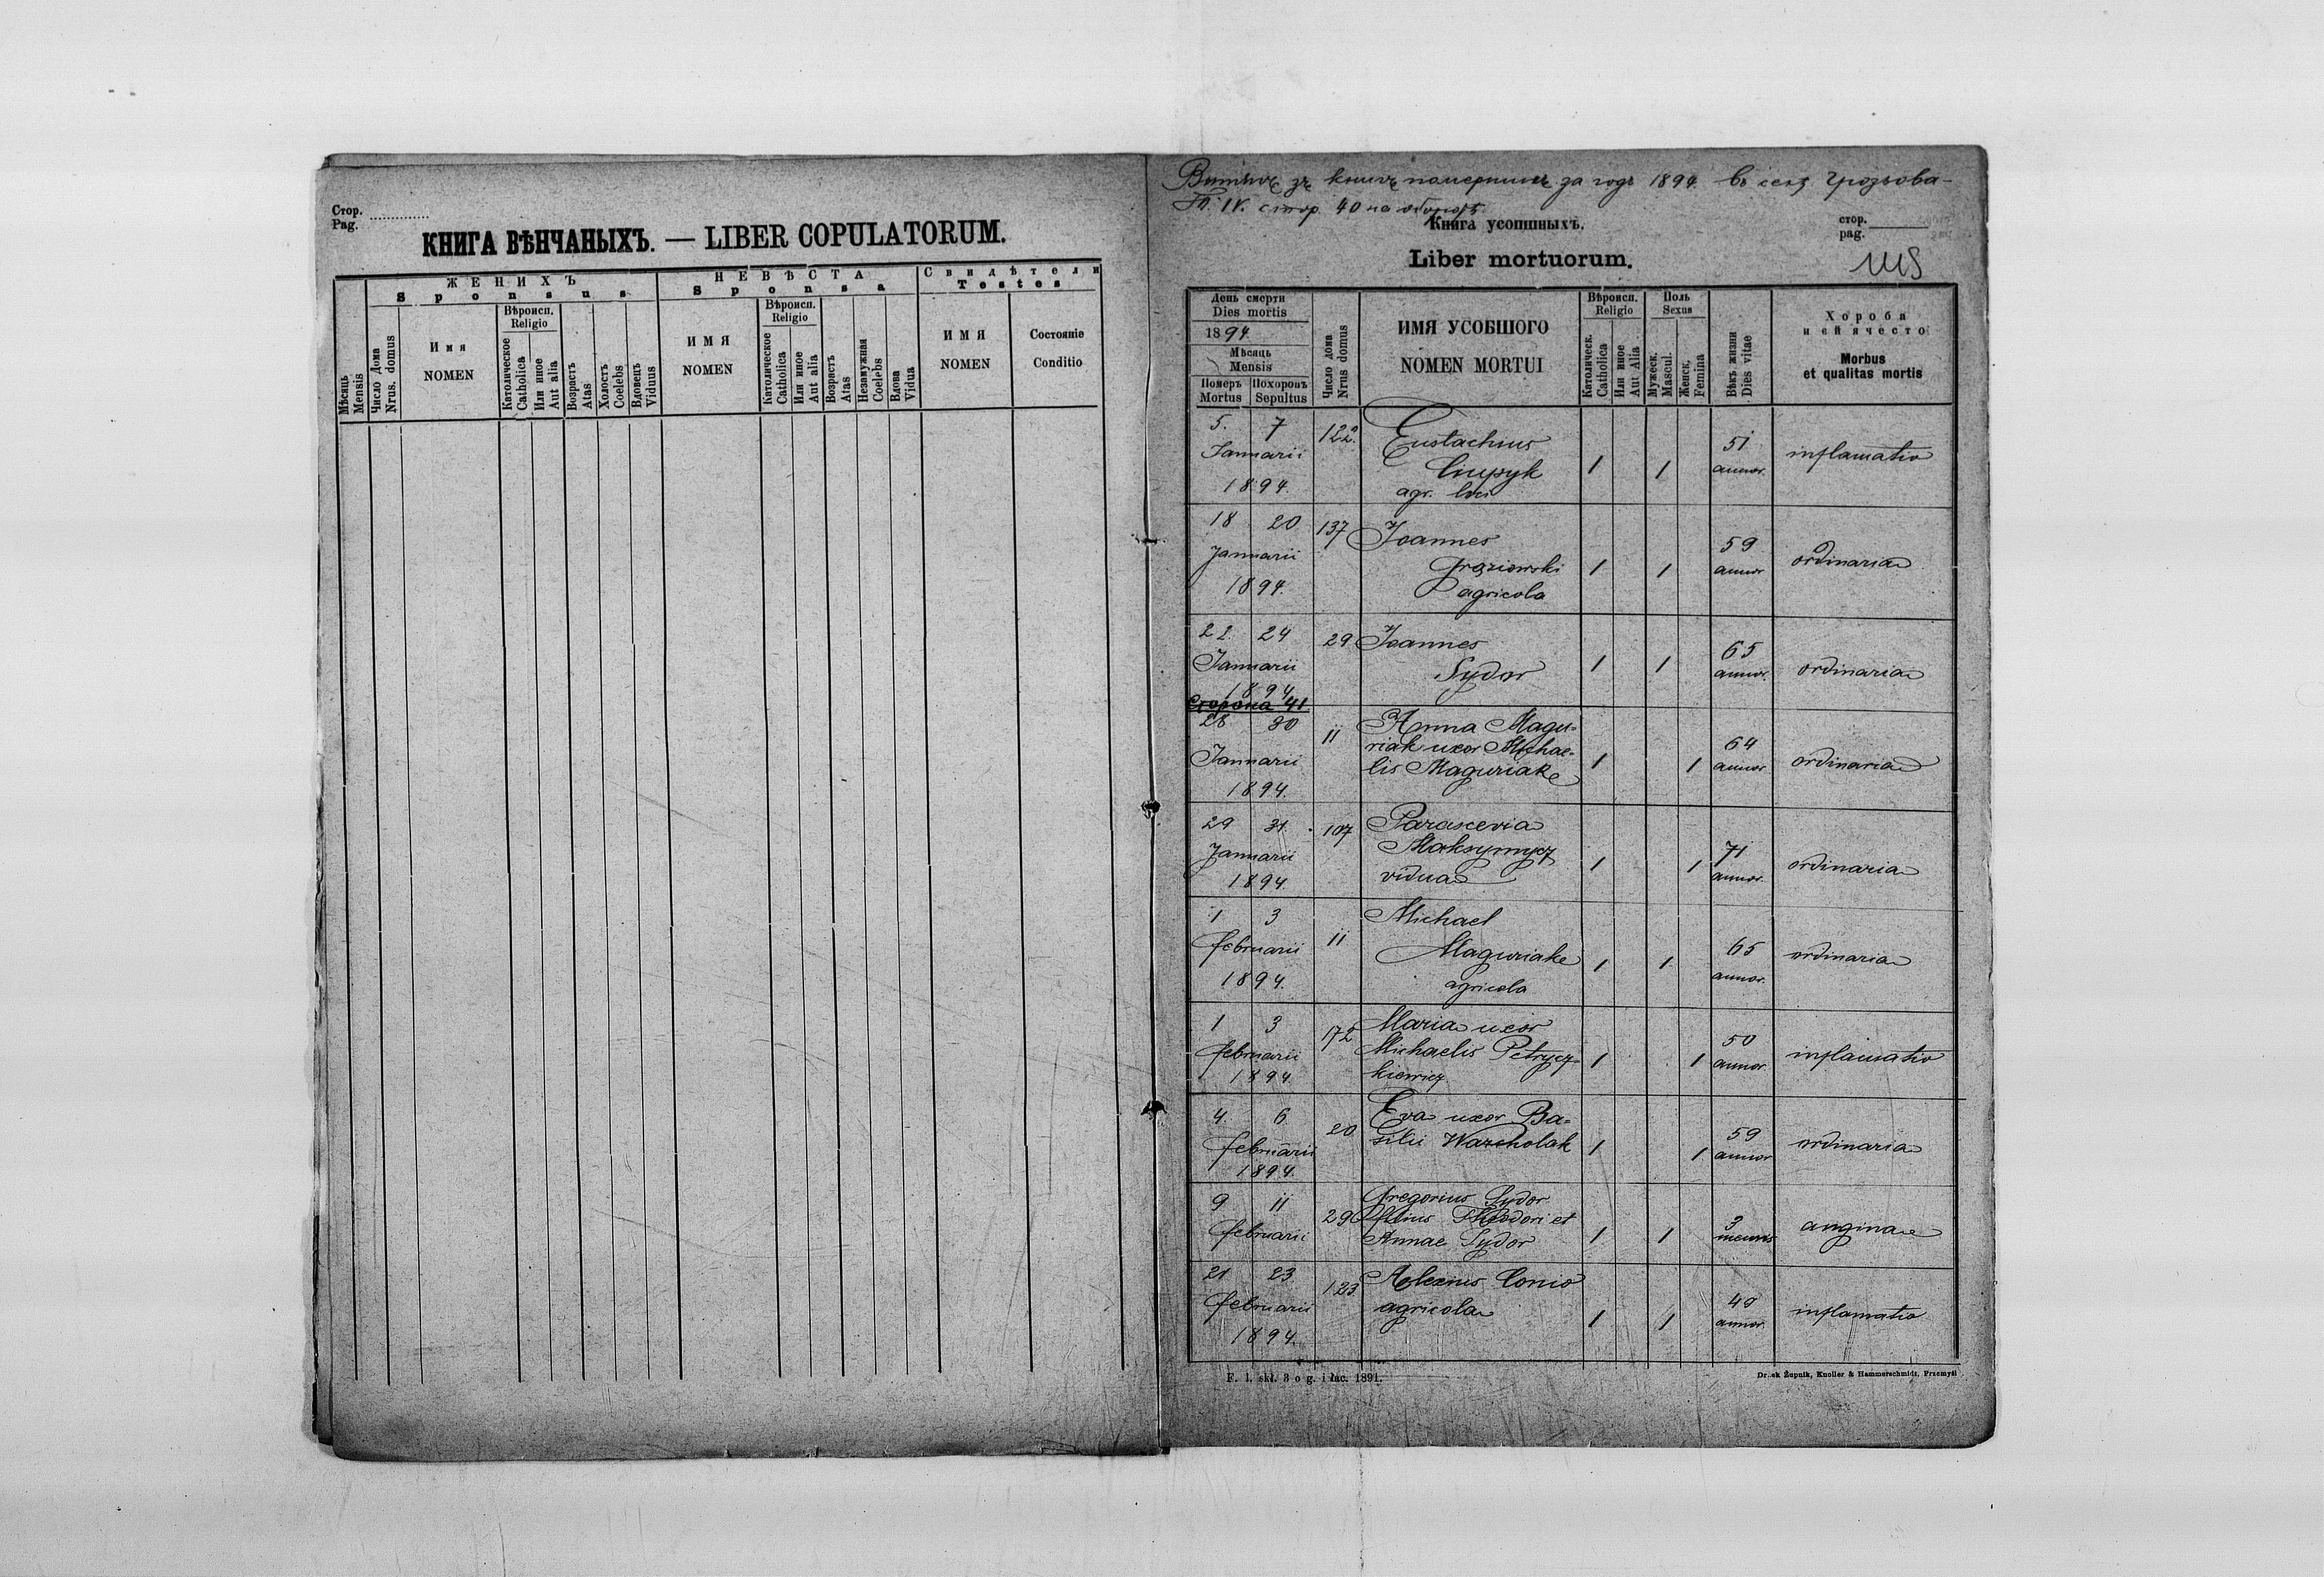 Стор.
Pag.
КНИГА ВѢНЧАНЫХЪ. — LIBER COPULATORUM.
Мѣсяць
Mensis
Число Дома
Nrus. domus
ЖЕНИХЪ
Sponsus
Имя
NOMEN
Вѣроисп.
Religio
Католическое
Catholica
Или иное
Aut alia
Возрастъ
Atas
Холостъ
Coelebs
Вдовецъ
Viduus
НЕВѢСТА
Sponsa
ИМЯ
NOMEN
Вѣроисп.
Religio
Католическое
Catholica
Или иное
Aut alia
Возрастъ
Atas
Незамужная
Coelebs
Вдова
Vidua
Свидѣтели
Testes
ИМЯ
NOMEN
Состояніе
Conditio
зъ книгъ за годъ 1894. въ селѣ Грозьова-
IV. стор. 40 на оборотѣ.
Книга усопшныхъ.
стор.
pag.
Liber mortuorum.
День смерти
Dies mortis
1894
Мѣсяць
Mensis
Померъ
Mortus
Похоронъ
Sepultus
Число дома
Nrus domus
ИМЯ УСОБШОГО
NOMEN MORTUI
Вѣроисп.
Religio
Католическ.
Catholica
Или иное
Aut Alia
Полъ
Sexus
Мужеск.
Mascul.
Женск,
Femina
Вѣкъ жизни
Dies vitae
Хороба
и ей ячесто
Morbus
et qualitas mortis
5. 7 Januarii 1894. 122. Eustachius
agr. loci
1 1 51 annor. inflamatio
18 20 Januarii 1894. 137 Joannes
Groziowski
agricola
1 1 59 annor ordinaria
22. 24 Januarii 1894 29 Joannes
Sydor
1 1 65 annor. ordinaria
Сторона 41.
28 30 Januarii 1894. 11 Anna Magu-
riak uxor Michae-
lis Maguriak
1 1 64 annor ordinaria
29 31. Januarii 1894. 107 Parascevia
Maksymycz
vidua
1 1 71 annor. ordinaria
1 3 februarii 1894. 11 Michael
Maguriak
agricola
1 1 65 annor. ordinaria
1 3 februarii 1894. 172 Maria uxor
Michaelis Petrycz-
kiewicz
1 1 50 annor. inflamatio
4. 6 februarii 1894. 20 Eva uxor Ba-
silii Warcholak
1 1 59 annor ordinaria
9 11 februarii 29 Gregorius Sydor
filius Theodori et
Annae Sydor
1 1 3 mensis angina
21 23 februarii 1894. 123 Alexius Conio
agricola
1 1 49 annor. inflamatio
F. 1. skł. 3 o g. i łac. 1891.
Druk Żupnik, Knoller & Hammerschmidt, Przemyśl